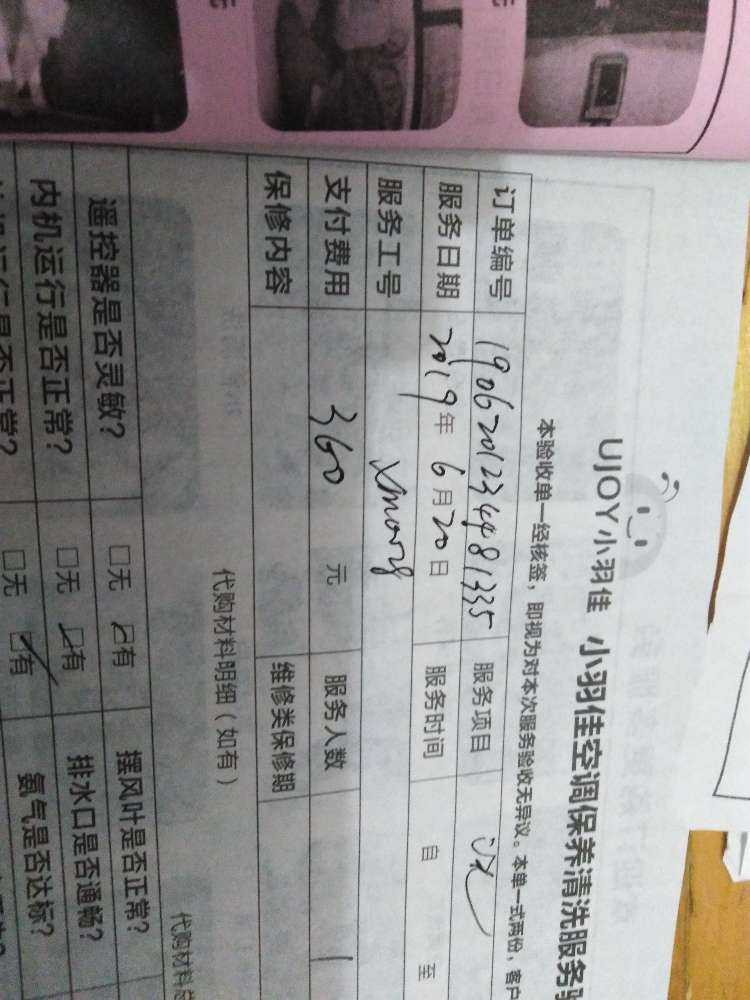 UJOY小羽佳 小羽佳空调保养清洗服务
本验收单一经核签，即视为对本次服务验收无异议。本单一式两份，客户
订单编号 1906201234481335 服务项目
服务日期 2019年6月20日 服务时间 自 至
服务工号
支付费用 360 元 服务人数 1
保修内容 维修类保修期
代购材料明细（如有） 代购材料
遥控器是否灵敏？ 无 有 摆风叶是否正常？
内机运行是否正常？ 无 有 排水口是否通畅？
机运行是否正常？ 无 有 氨气是否达标？